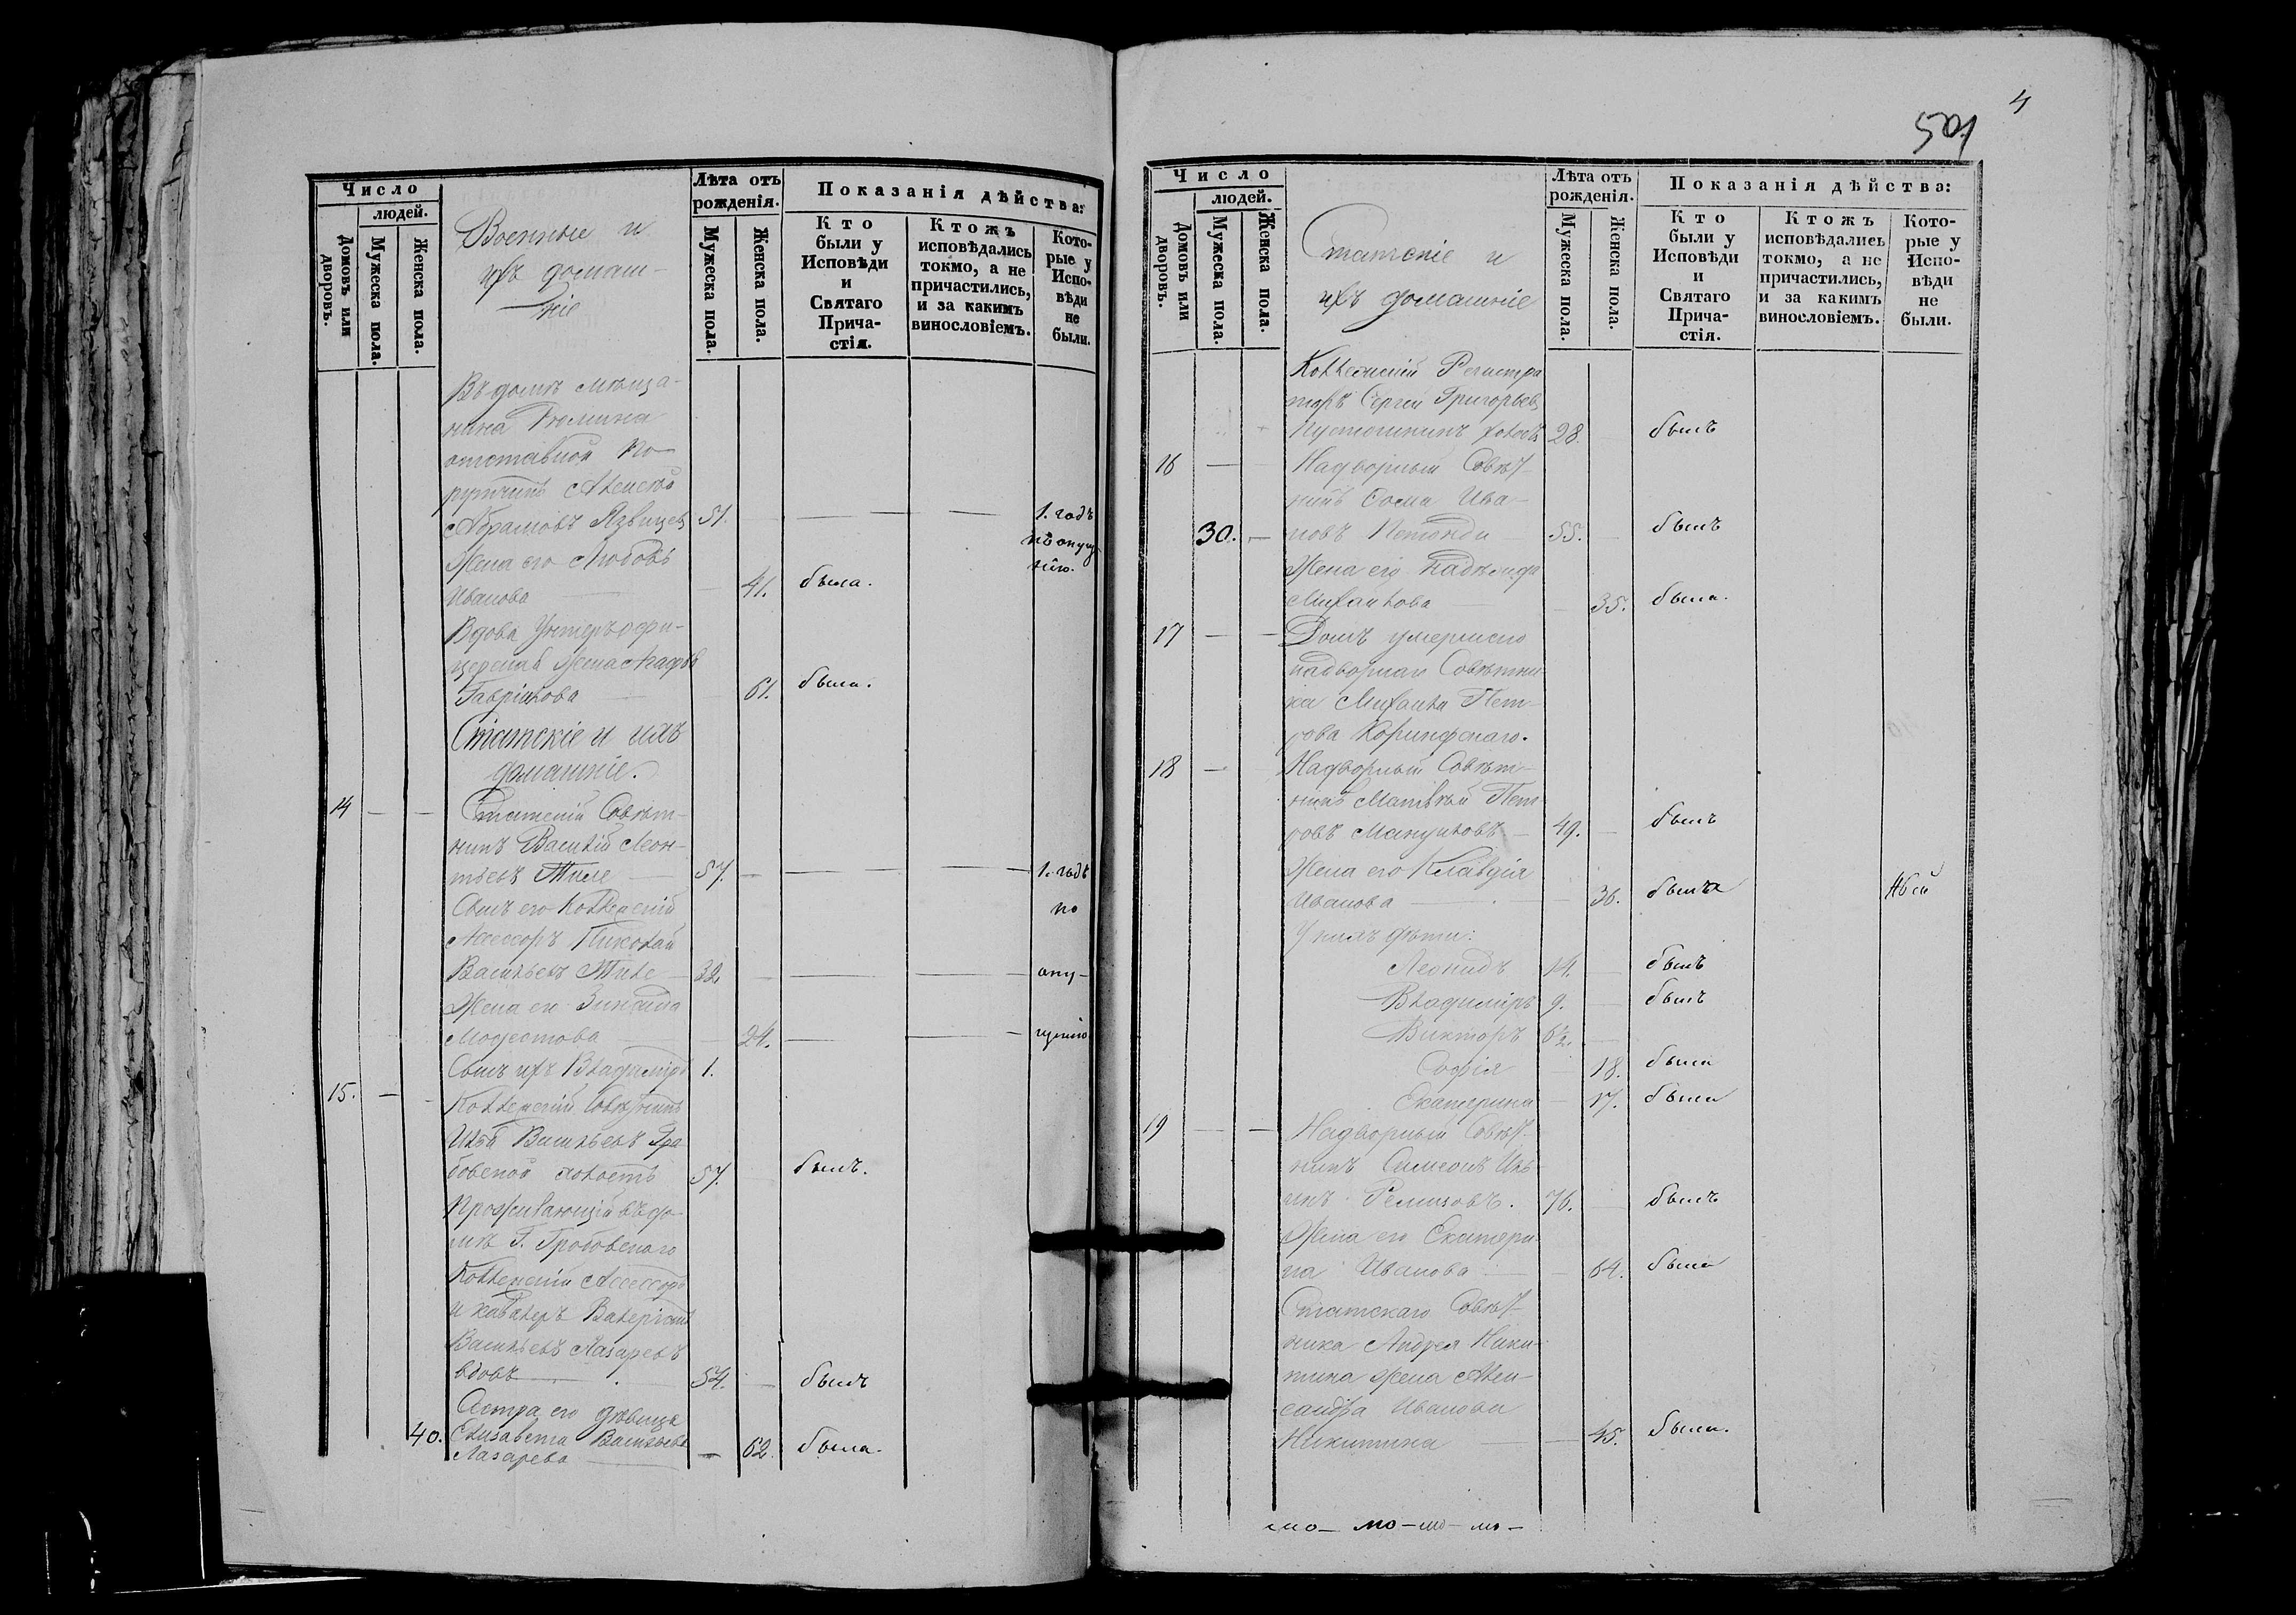 Число
людей.
Домовъ или дворовъ.
Мужеска пола.
Женска пола.
Военные и
ихъ домаш-
ніе
Лѣта отъ
рожденія.
Мужеска пола.
Женска пола.
Показанія дѣйства:
Кто
были у
Исповѣди
и
Святаго
Прича-
стія.
Ктожъ
исповѣдались
токмо, а не
причастились,
и за какимъ
винословіемъ.
Кото-
рые у
Испо-
вѣди
не
были.
Въ домѣ мѣща-
нина Тюмина
отставной По-
ручикъ Алексѣй
Абрамовъ Язвицевъ 51. 1. годъ
по опущ
Жена его Любовь нію.
Иванова 41. была.
Вдова Унтеръ офи-
церская жена Агафья
Гавріилова 61. была.
Статскіе и ихъ
домашніе.
14 — — Статскій Совѣт-
никъ Василій Леон-
тьевъ Тиле 57. 1. годъ
Сынъ его Коллежскій по
Ассессоръ Николай
Васильевъ Тиле 32. опу-
Жена его Зинаида
Модестова 24. щенію
Сынъ ихъ Владиміръ 1.
15. — — Коллежскій Совѣтникъ
Илья Васильевъ Гра
бовской холостъ 57. былъ.
Проживающій въ до-
мѣ Г. Гробовскаго
Коллежскій Ассессоръ
и кавалеръ Валеріанъ
Васильевъ Лазаревъ
вдовъ 54. — былъ
Сестра его дѣвица
40. Елизавета Васильева
Лазарева — 62. была.
4
501
Число
людей.
Домовъ или дворовъ.
Мужеска пола.
Женска пола.
Статскіе и
ихъ домашніе
Лѣта отъ
рожденія.
Мужеска пола.
Женска пола.
Показанія дѣйства:
Кто
были у
Исповѣди
и
Святаго
Прича-
стія.
Ктожъ
исповѣдались
токмо, а не
причастились,
и за какимъ
винословіемъ.
Кото-
рые у
Испо-
вѣди
не
были.
Коллежскій Регистра
торъ Сергей Григорьевъ
Пустошкинъ холостъ 28. былъ
16 — — Надворный Совѣт-
никъ Ѳома Ива-
30. — новъ Петонди 55. былъ
Жена его Надежда
Михаилова 35. была.
17 — — Домъ умершаго
надворнаго Совѣтни
ка Михаила Пет-
рова Коринфскаго.
18 — — Надворный Совѣт-
никъ Матвѣй Пет-
ровъ Мануиловъ — 49. былъ
Жена его Клавдія
Иванова 36. была
У нихъ дѣти:
Леонидъ 14. былъ
Владиміръ 9. былъ
Викторъ 6½.
Софія 18. была
Екатерина 17. была
19 — — Надворный Совѣт-
никъ Симеонъ Иль-
инъ Ремизовъ. 76. былъ
Жена его Екатери
на Иванова — 64. была
Статскаго Совѣт-
ника Андрея Ники-
тина жена Алек-
сандра Иванова
Никитина — 45. была.